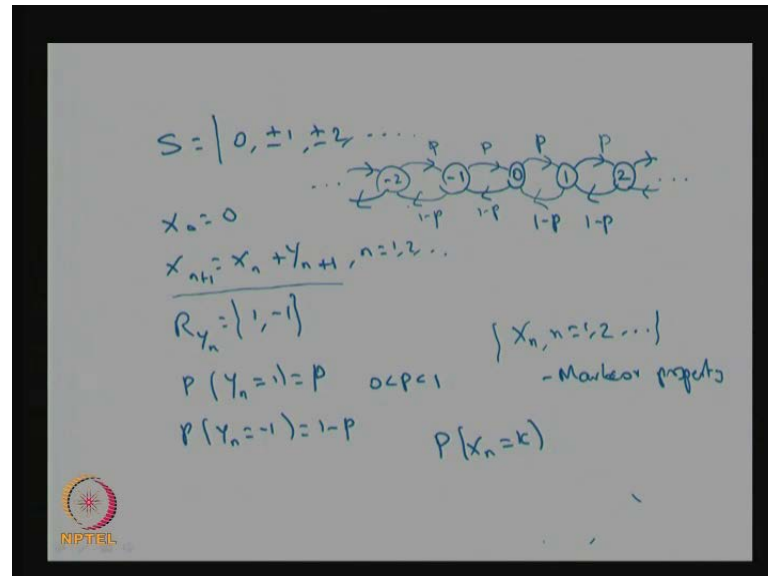 S = { 0, ±1, ±2, ....
P P P P
... -2 -1 0 1 2 ...
1-P 1-P 1-P 1-P
X₀ = 0
Xₙ₊₁ = Xₙ + Yₙ₊₁, n=1,2..
R_Yₙ = {1, -1}
{Xₙ, n=1,2 ...}
P(Yₙ=1) = P 0<P<1
- Markov property
P(Yₙ=-1) = 1-P
P(Xₙ=k)
NPTEL